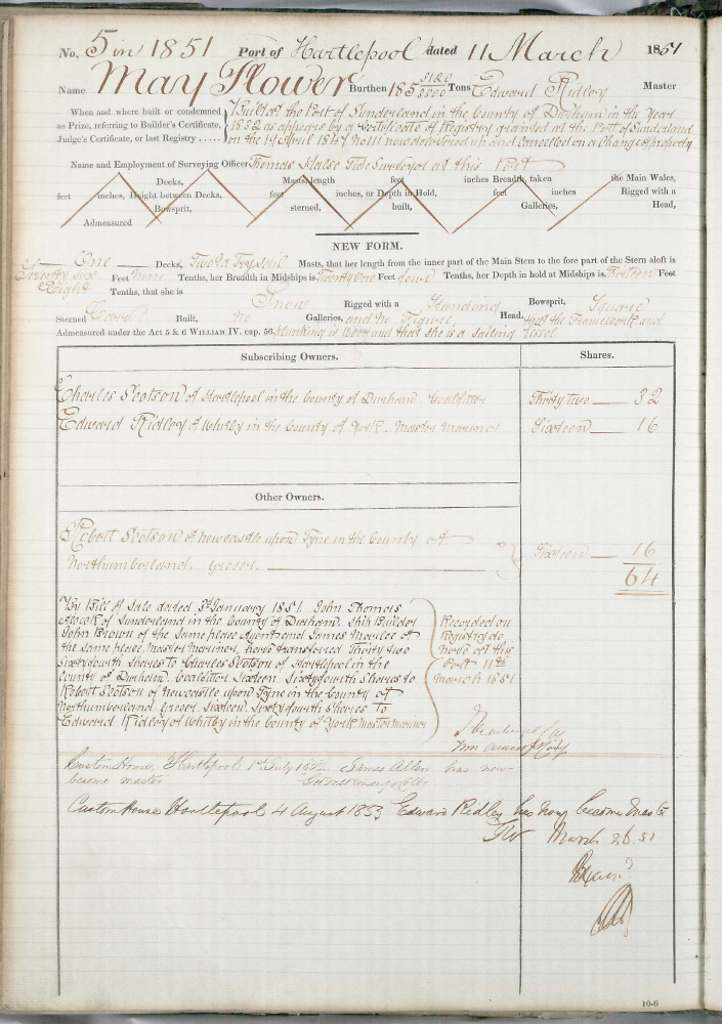 No. 5 in 1851 Port of Hartlepool dated 11 March 1851
Name May Flower Burthen 185 3120/3500 Tons Edward Ridley Master
When and where built or condemned as Prize, referring to Builder's Certificate, Judge's Certificate, or last Registry .....
Built at the Port of Sunderland in the County of Durham in the Year
1832 as appears by a Certificate of Registry granted at the Port of Sunderland
on the 14 April 1847 No 111 now delivered up and Cancelled on a Change of property
Name and Employment of Surveying Officer Thomas Tide Surveyor at this Port
Decks, Masts, length feet inches Breadth, taken the Main Wales,
feet inches, Height between Decks, feet inches, or Depth in Hold, feet inches Rigged with a
Bowsprit, sterned, built, Galleries, Head,
Admeasured
NEW FORM.
One Decks, Two & a Trysail Masts, that her length from the inner part of the Main Stem to the fore part of the Stern aloft is
Seventy six Feet nine Tenths, her Breadth in Midships is Twenty One Feet four Tenths, her Depth in hold at Midships is Thirteen Feet
Eight Tenths, that she is Snow Rigged with a Standing Bowsprit, Square
Sterned Carvel Built, no Galleries, and no Figure Head. that the Framework and
Admeasured under the Act 5 & 6 WILLIAM IV. cap. 56, planking is Wood and that she is a sailing Vessel
Subscribing Owners. Shares.
Charles Scotson of Hartlepool in the County of Durham Coalfitter Thirty two — 32
Edward Ridley of Whitby in the County of York. Master Mariner Sixteen — 16
Other Owners.
Robert Scotson of Newcastle upon Tyne in the County of
Northumberland. Grocer. Sixteen — 16
64
By Bill of Sale dated 3d January 1851 John Thomas
Alcock of Sunderland in the County of Durham, Ship Builder
John Brown of the same place Agent and James Marlee of
the same place, Master Mariner, have transferred Thirty two
Sixtyfourth Shares to Charles Scotson of Hartlepool in the
County of Durham. Coalfitter Sixteen Sixtyfourth Shares to
Robert Scotson of Newcastle upon Tyne in the County of
Northumberland Grocer Sixteen Sixtyfourth Shares to
Edward Ridley of Whitby in the County of York Master Mariner
Recorded on
Registry de
novo at this
Port 11th
March 1851
Custom House, Hartlepool 1st July James Allen has now
become master
Custom House Hartlepool 4 August 1853 Edward Ridley has now become Mas
March 26. 51
10-6